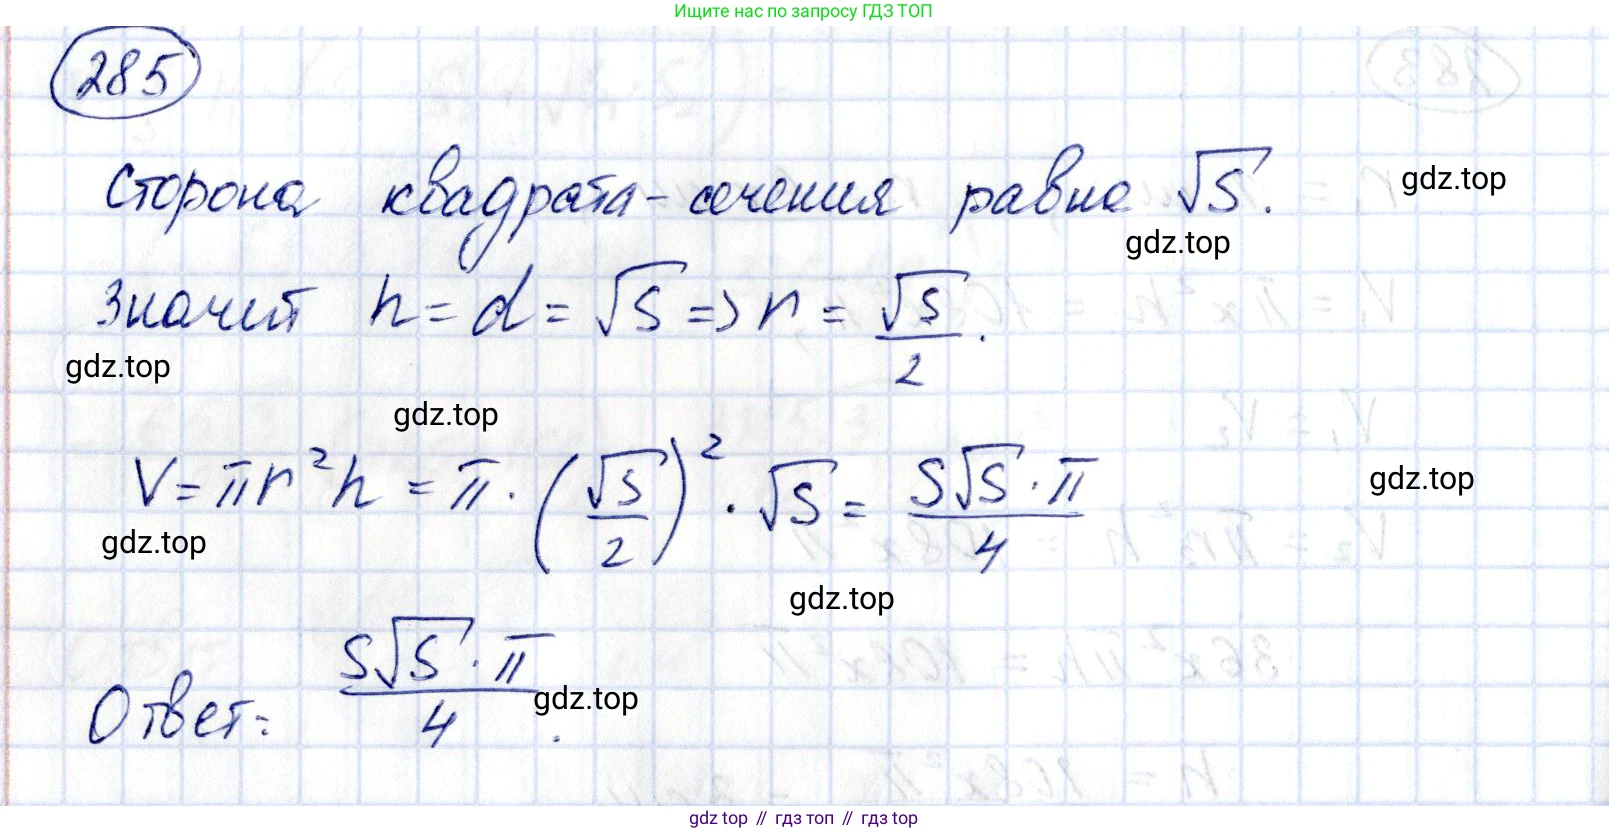 Ищите нас по запросу ГДЗ ТОП
285
Сторона квадрата-сечения равна √S.
gdz.top
gdz.top
Значит h = d = √S => r = √S/2.
gdz.top
gdz.top
V = πr²h = π · (√S/2)² · √S = S√S · π/4
gdz.top
gdz.top
gdz.top
Ответ: S√S · π/4.
gdz.top
gdz top // гдз топ // gdz top